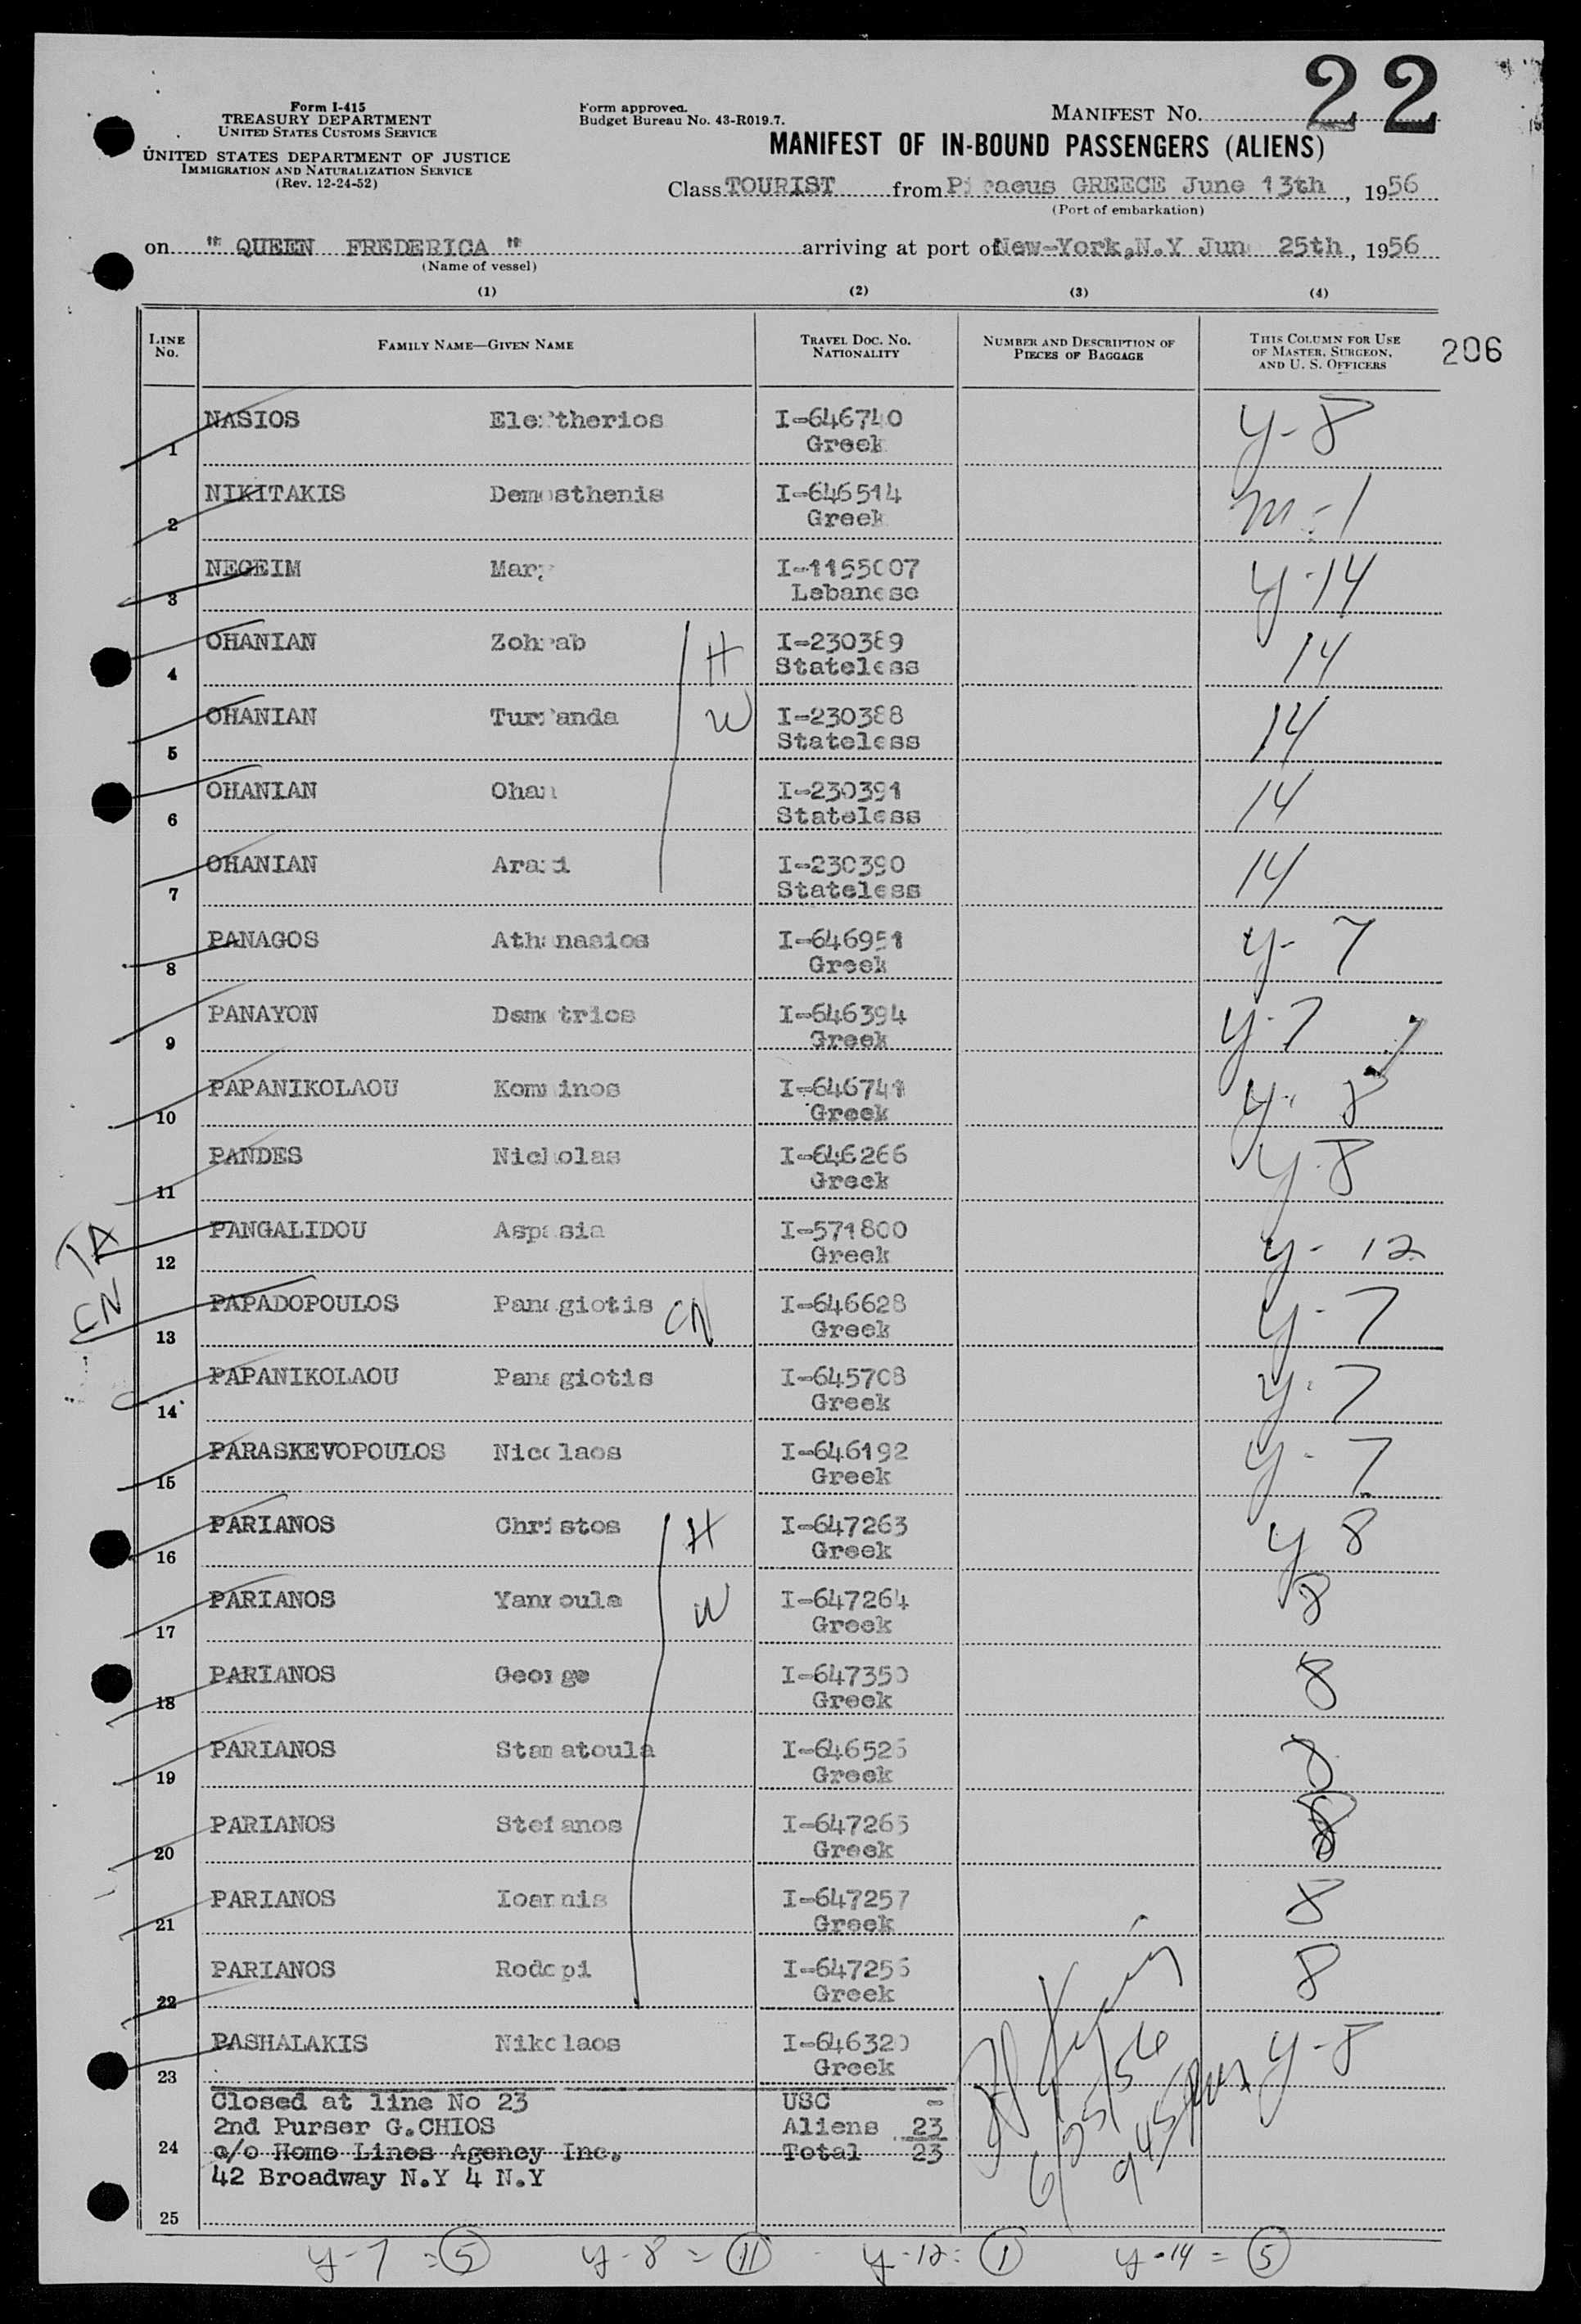 22
Form I-415
TREASURY DEPARTMENT
UNITED STATES CUSTOMS SERVICE
UNITED STATES DEPARTMENT OF JUSTICE
IMMIGRATION AND NATURALIZATION SERVICE
(Rev. 12-24-52)
Form approved.
Budget Bureau No. 43-R019.7.
MANIFEST NO.
MANIFEST OF IN-BOUND PASSENGERS (ALIENS)
Class TOURIST from Piraeus GREECE June 13th, 1956
(Port of embarkation)
on " QUEEN FREDERICA " arriving at port of New-York,N.Y June 25th, 1956
(Name of vessel)
(1) (2) (3) (4)
LINE No. FAMILY NAME—GIVEN NAME TRAVEL DOC. NO. NATIONALITY NUMBER AND DESCRIPTION OF PIECES OF BAGGAGE THIS COLUMN FOR USE OF MASTER, SURGEON, AND U. S. OFFICERS 206
1 NASIOS Eleftherios I-646740 Greek y-8
2 NIKITAKIS Demosthenis I-646514 Greek m-1
3 NEGEIM Mary I-1155007 Lebanese y-14
4 OHANIAN Zohrab H I-230389 Stateless 14
5 OHANIAN W I-230388 Stateless 14
6 OHANIAN Ohan I-230391 Stateless 14
7 OHANIAN I-230390 Stateless 14
8 PANAGOS Athanasios I-646951 Greek y-7
9 PANAYON Demetrios I-646394 Greek y-7
10 PAPANIKOLAOU Komninos I-646741 Greek y-8
11 PANDES Nicholas I-646266 Greek y-8
TA 12 PANGALIDOU Aspasia I-571800 Greek y-12
CN 13 PAPADOPOULOS Panagiotis CN I-646628 Greek y-7
14 PAPANIKOLAOU Panagiotis I-645708 Greek y-7
15 PARASKEVOPOULOS Nicolaos I-646192 Greek y-7
16 PARIANOS Christos H I-647263 Greek y 8
17 PARIANOS Yannoula W I-647264 Greek 8
18 PARIANOS George I-647350 Greek 8
19 PARIANOS Stamatoula I-646526 Greek 8
20 PARIANOS Stefanos I-647265 Greek 8
21 PARIANOS Ioannis I-647257 Greek 8
22 PARIANOS Rodopi I-647256 Greek 8
23 PASHALAKIS Nikolaos I-646320 Greek y-8
Closed at line No 23 USC -
2nd Purser G.CHIOS Aliens 23
24 c/o Home Lines Agency Inc. Total 23
42 Broadway N.Y 4 N.Y
25
6/25/56
945
y-7 = 5 y-8 = 11 y-12 = 1 y-14 = 5